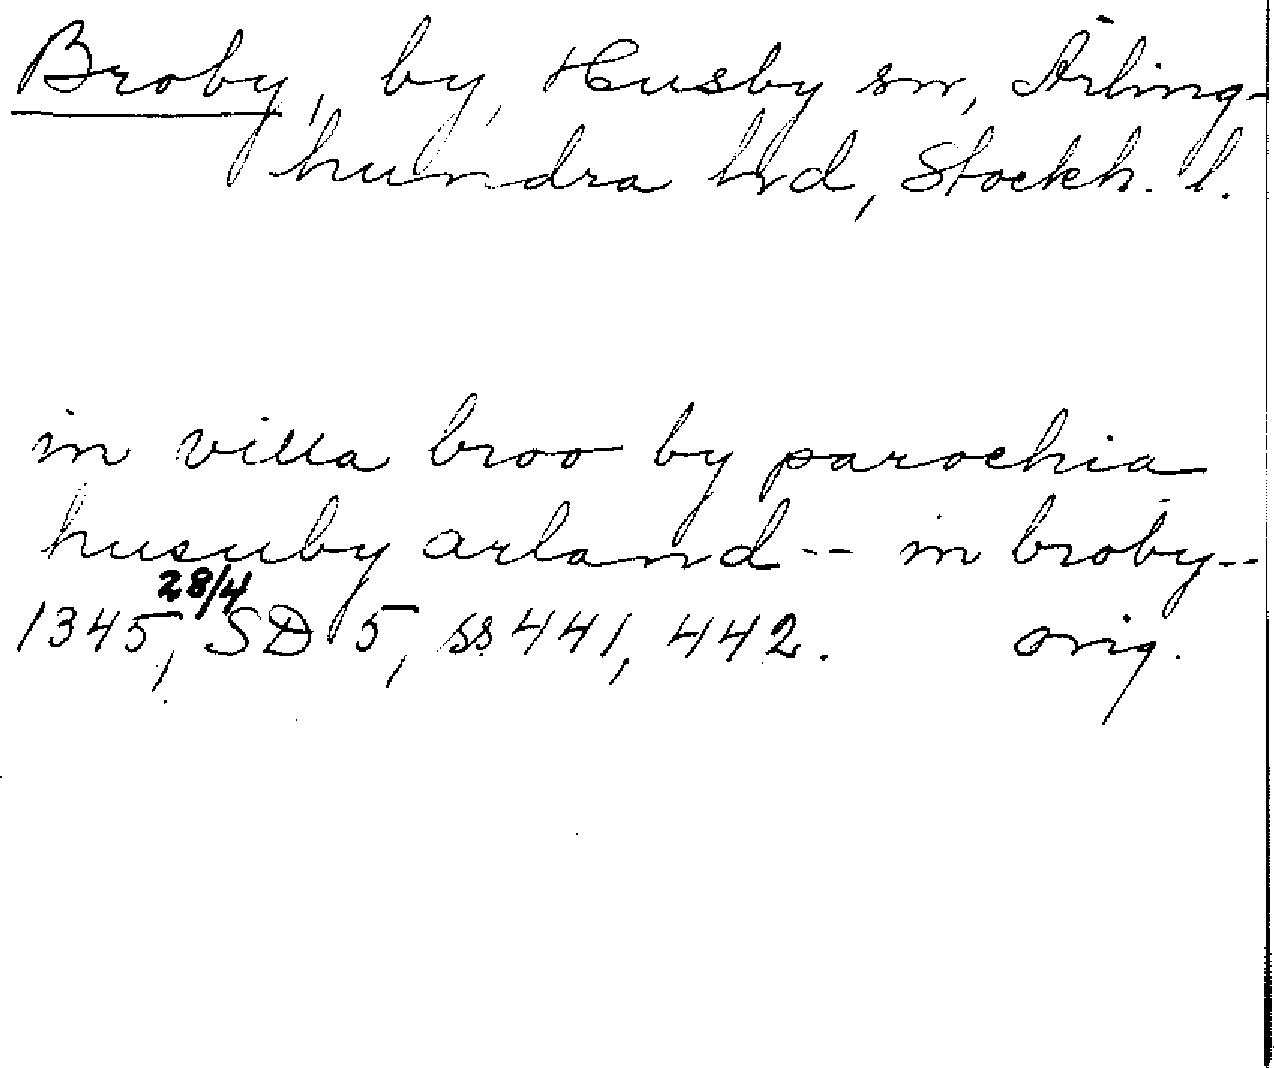 Broby, by, Husby sn, Ärling-
hundra hrd, Stockh. l.
in villa broo by parochia
husuby arland -- in broby --
28/4
1345, SD 5, ss 441, 442. orig.